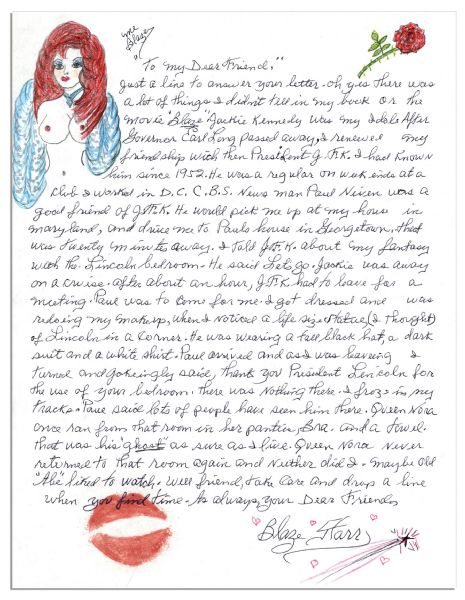 me
Blaze
"To My Dear Friend,"
Just a line to answer your letter. oh, yes there was
a lot of things I didn't tell in my book or the
movie "Blaze" Jackie Kennedy was my Idele After
Governor Earl Long passed away, I renewed my
friendship with then President J.F.K. I had Known
him since 1952. He was a regular on week ends at a
club I worked in D.C. C.B.S. News man Paul Niven was a
good friend of J.F.K. He would pick me up at my house in
maryland, and drive me to Pauls house in Georgetown, that
was twenty minute away. I told J.F.K. about my fantasy
with the Lincoln bedroom. He said Lets go. Jackie was away
on a cruise. After about an hour, J.F.K. had to leave for a
meeting. Paul was to come for me. I got dressed and was
redoing my makeup, when I noticed a life size statue, (I thought)
of Lincoln in a corner. He was wearing a tall black hat, a dark
suit and a white shirt. Paul arrived and as I was leaving I
turned and jokeingly said, thank you President Lincoln for
the use of your bedroom. There was Nothing there. I froze in my
tracks. Paul said lots of people have seen him there. Queen Nora
once ran from that room in her panties, Bra. and a towel.
that was his "ghost" as sure as I live. Queen Nora Never
returned to that room again and Neither did I. maybe Old
"Abe" liked to watch. Well friend, take care and drop a line
when you find time. As always, your Dear Friend,
Blaze Starr